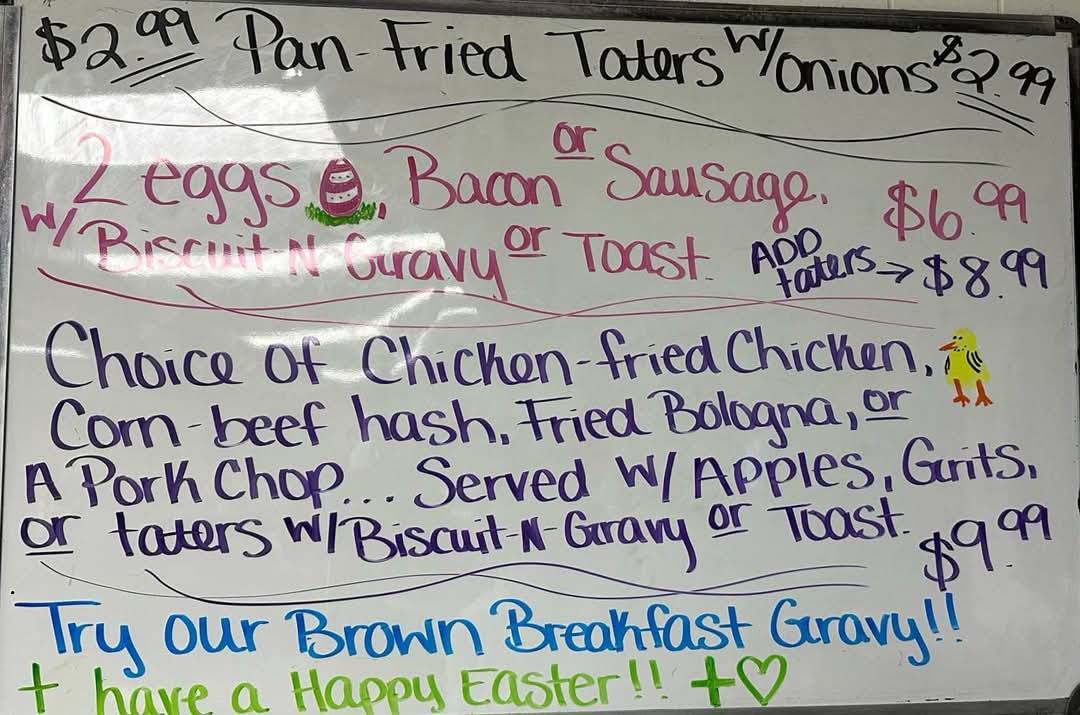 $2.99 Pan-Fried Taters w/onions $2.99
2 eggs, Bacon or Sausage. $6.99
w/ Biscuit-N-Gravy or Toast. ADD taters → $8.99
Choice of Chicken-fried Chicken,
Corn-beef hash, Fried Bologna, or
A Pork Chop... Served w/ Apples, Grits,
or taters w/ Biscuit-N-Gravy or Toast. $9.99
Try our Brown Breakfast Gravy!!
+ have a Happy Easter!! +♡